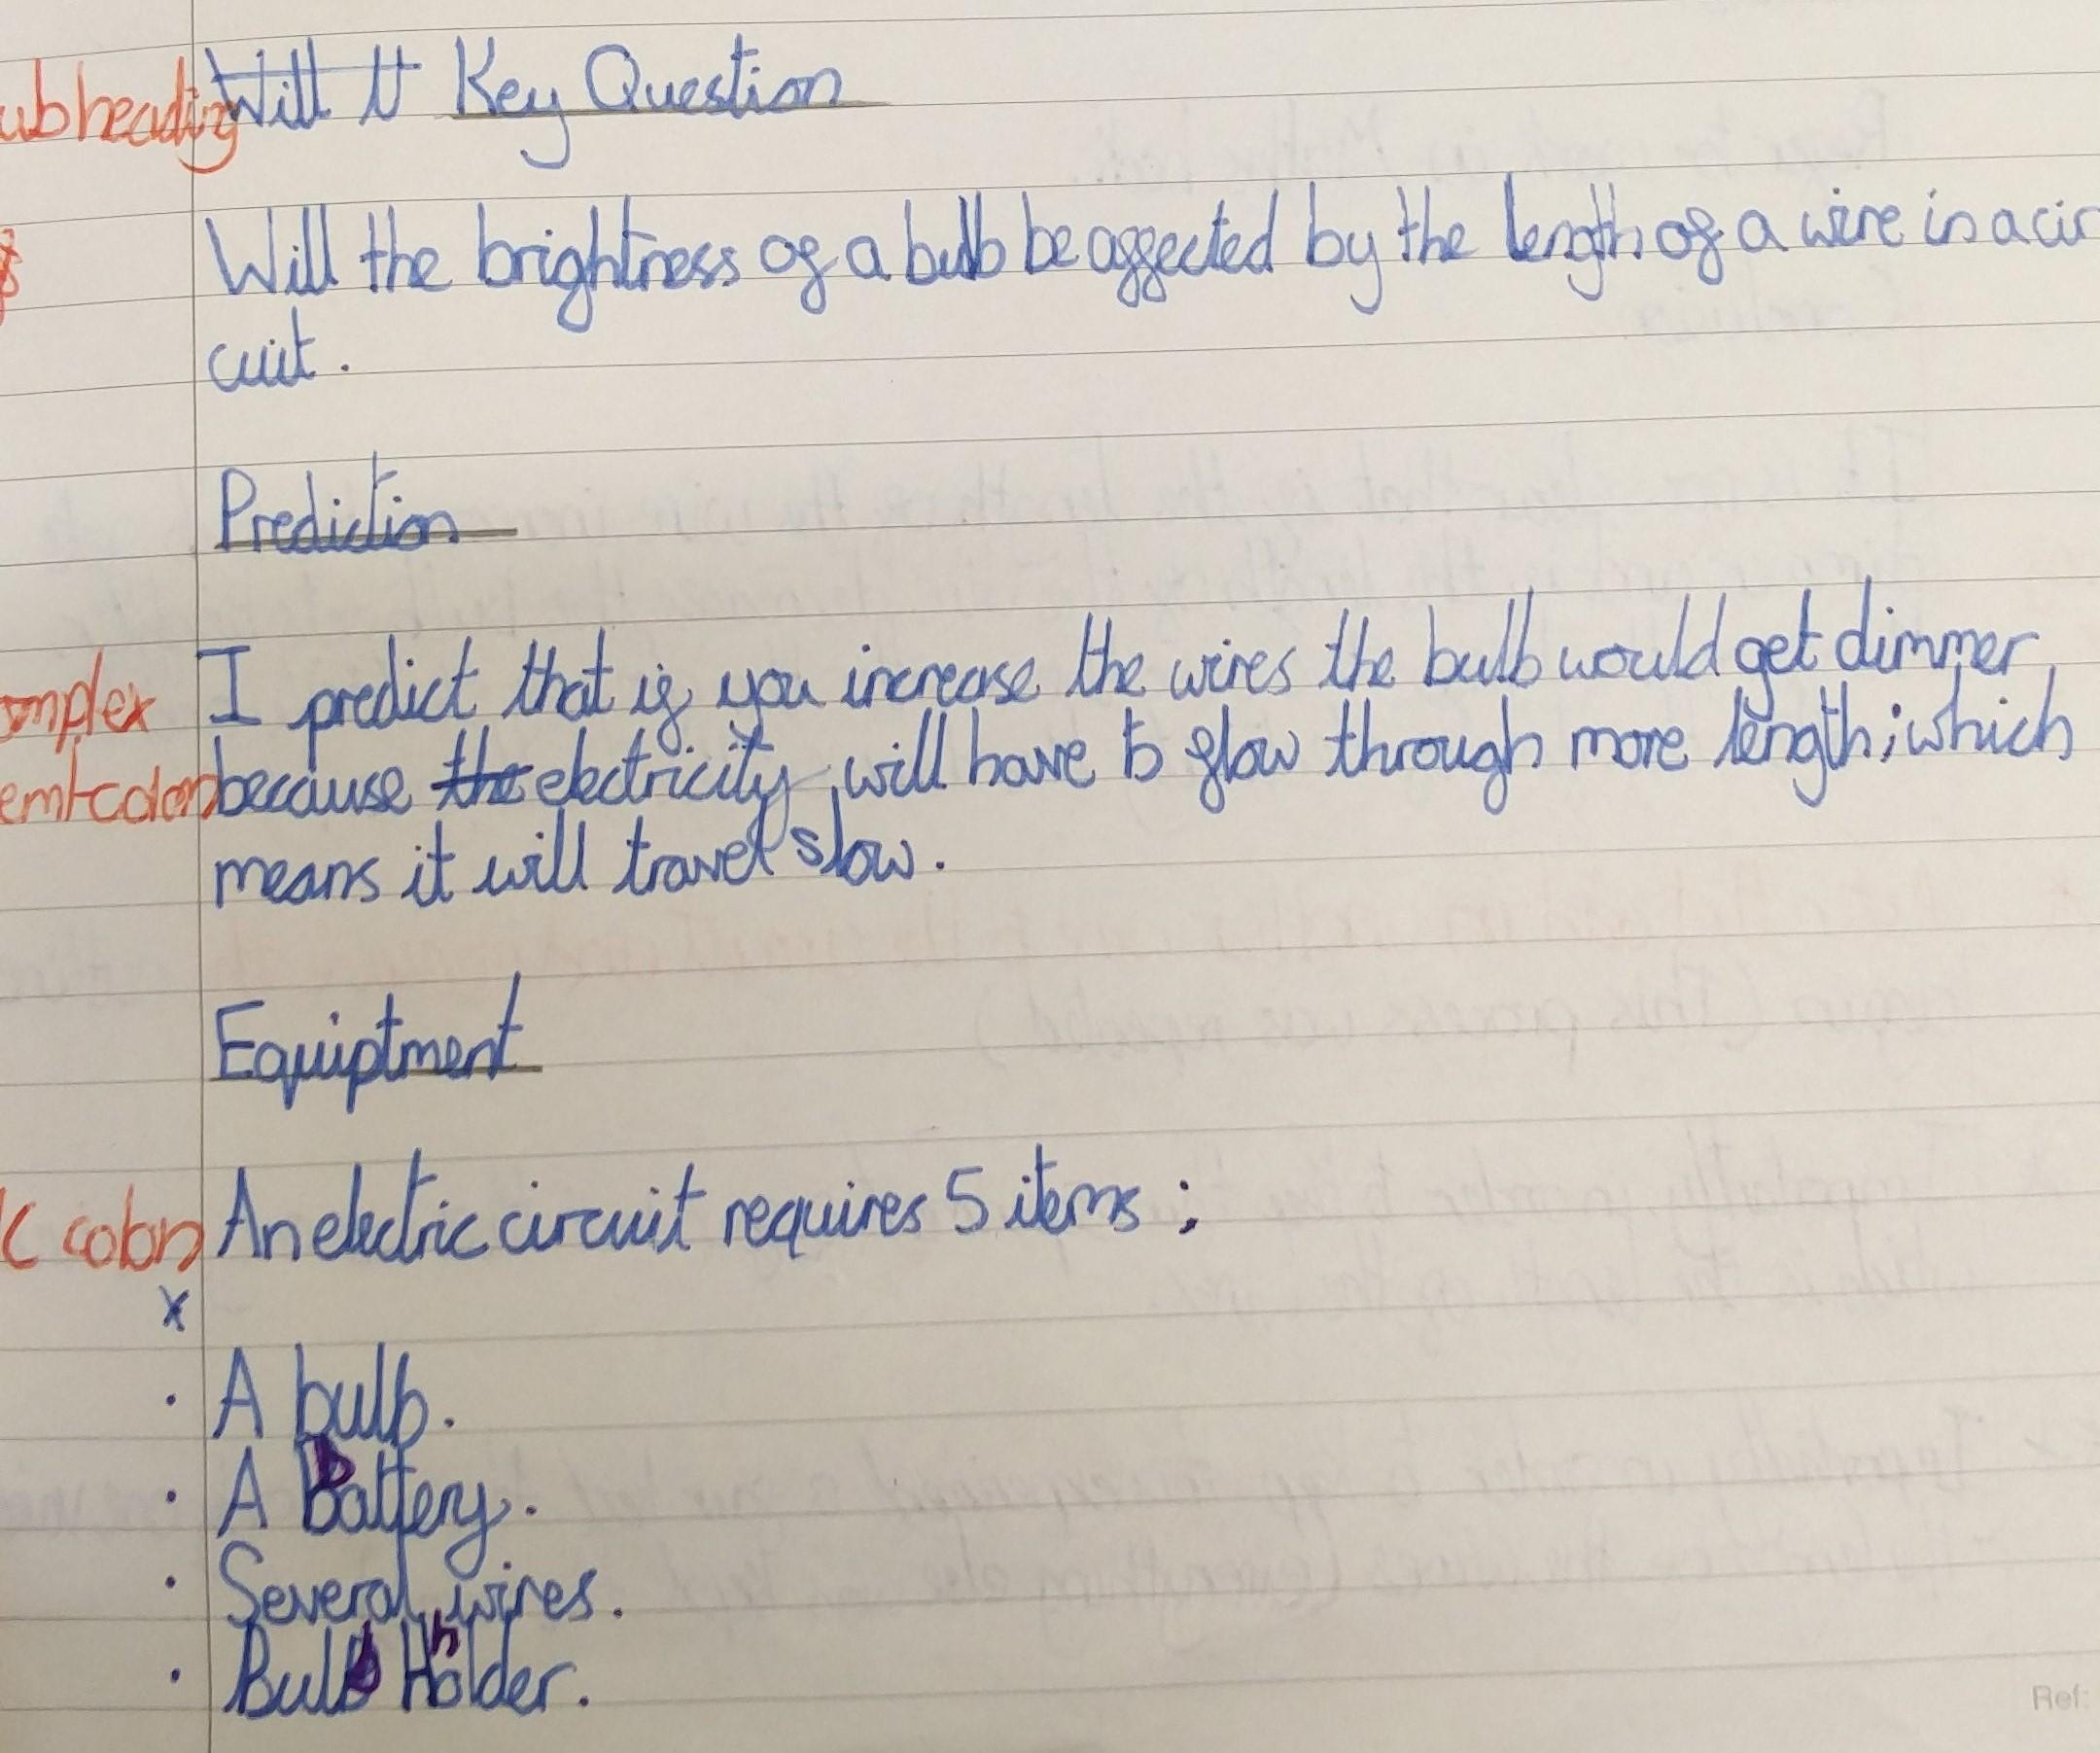 ubheading ~~Will it~~ Key Question
Will the brightness of a bulb be affected by the length of a wire in a cir
cuit.
Prediction
omplex I predict that if you increase the wires the bulb would get dimmer,
emi-colon because ~~the~~ electricity will have to flow through more length; which
means it will travel slow.
Equiptment
colon An electric circuit requires 5 items;
x
· A bulb.
· A Battery.
· Several wires.
· Bulb holder.
Ref: